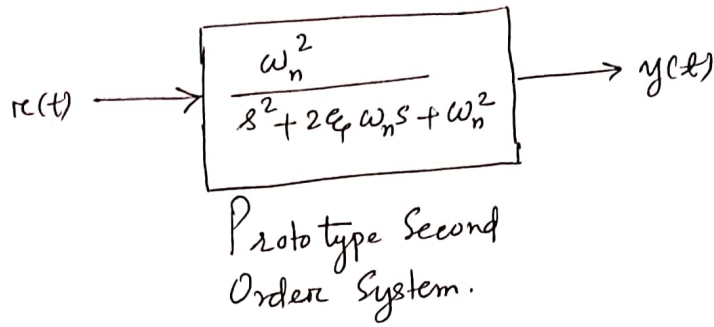 ω_n^2
r(t) → → y(t)
s^2 + 2ξω_n s + ω_n^2
Prototype Second
Order System.